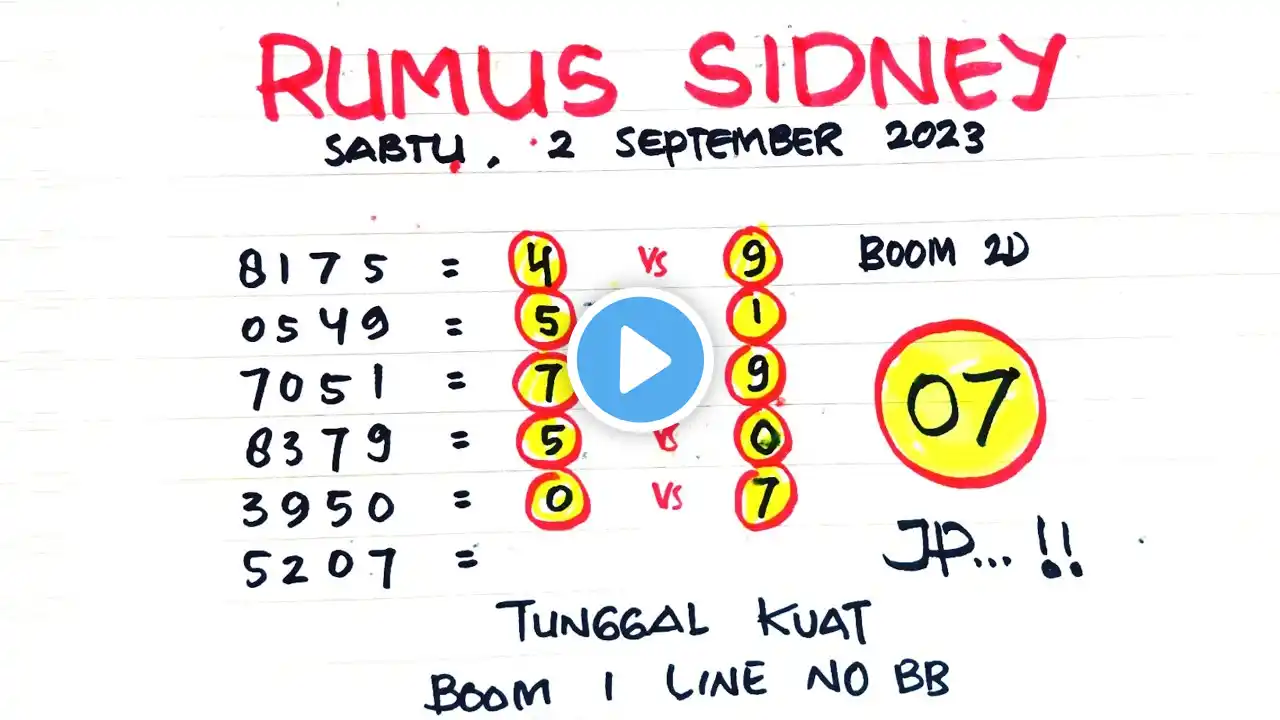 RUMUS SIDNEY
SABTU, 2 SEPTEMBER 2023
8175 = 4 VS 9 BOOM 2D
0549 = 5 1
7051 = 7 9 07
8379 = 5 VS 0
3950 = 0 VS 7
5207 = JP...!!
TUNGGAL KUAT
BOOM 1 LINE NO BB